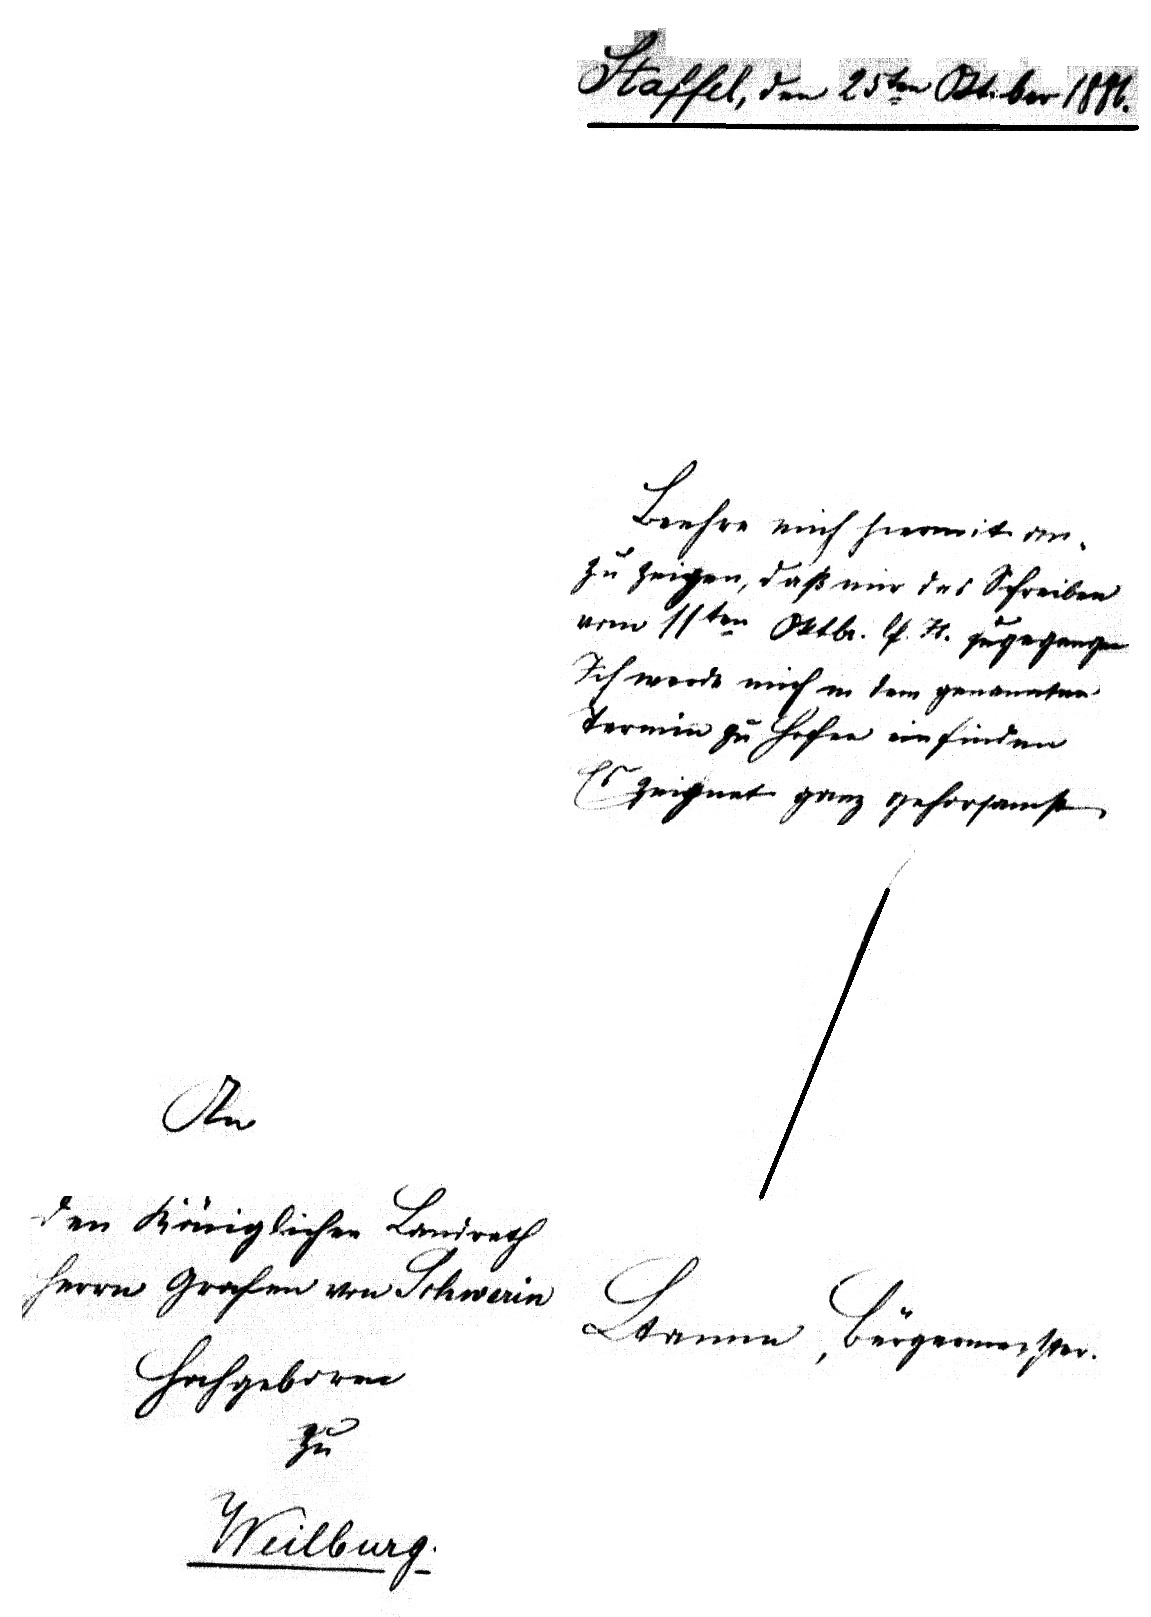 Staffel, den 25ten Oktober 1886.
Beehre mich hiermit an-
zu zeigen, daß mir das Schreiben
vom 11ten Oktbr. lf. Js. zugegangen
Ich werde mich in dem genannten
Termin zu Hofen einfinden
Es zeignet ganz gehorsamst
An
den Königlichen Landrath
Herrn Grafen von Schwerin
Hochgeboren
zu
Weilburg.
, Bürgermeister.